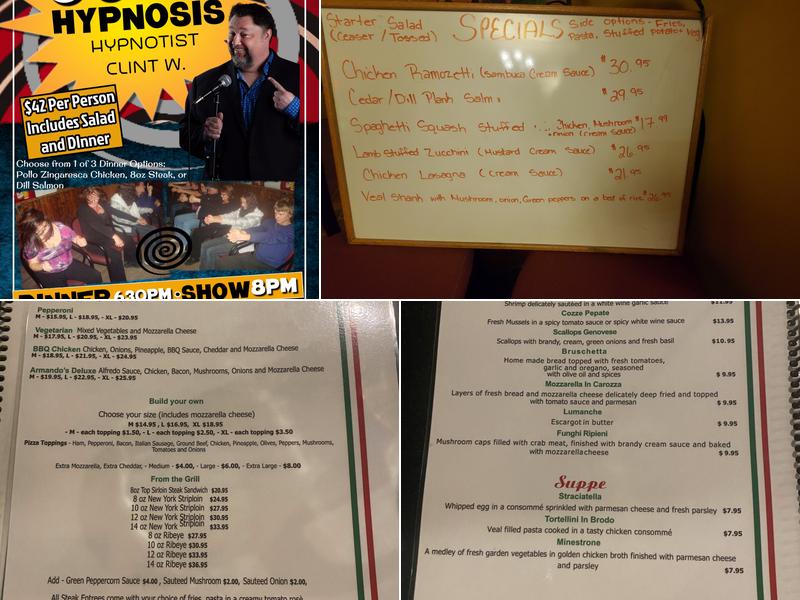 HYPNOSIS
HYPNOTIST
CLINT W.
$42 Per Person
Includes Salad
and Dinner
Choose from 1 of 3 Dinner Options:
Pollo Zingaresca Chicken, 8oz Steak, or
Dill Salmon
DINNER 630PM • SHOW 8PM
Starter Salad
(Ceaser / Tossed)
SPECIALS
Side options - Fries,
Pasta, Stuffed potato + Veg
Chicken Ramozetti (Sambuca Cream Sauce) $30.95
Cedar / Dill Plank Salm $29.95
Spaghetti Squash Stuffed :... Chicken, Mushroom $17.99
+ onion (cream sauce)
Lamb Stuffed Zucchini (Mustard Cream Sauce) $26.95
Chicken Lasagna (Cream Sauce) $21.95
Veal Shank with Mushroom, onion, Green peppers on a bed of rice
Pepperoni
M - $15.95, L - $18.95, - XL - $20.95
Vegetarian Mixed Vegetables and Mozzarella Cheese
M - $17.95, L - $20.95, - XL - $23.95
BBQ Chicken Chicken, Onions, Pineapple, BBQ Sauce, Cheddar and Mozzarella Cheese
M - $18.95, L - $21.95, - XL - $24.95
Armando's Deluxe Alfredo Sauce, Chicken, Bacon, Mushrooms, Onions and Mozzarella Cheese
M - $19.95, L - $22.95, - XL - $25.95
Build your own
Choose your size (includes mozzarella cheese)
M $14.95 , L $16.95, XL $18.95
- M - each topping $1.50, - L - each topping $2.50, - XL - each topping $3.50
Pizza Toppings - Ham, Pepperoni, Bacon, Italian Sausage, Ground Beef, Chicken, Pineapple, Olives, Peppers, Mushrooms,
Tomatoes and Onions
Extra Mozzarella, Extra Cheddar, - Medium - $4.00, - Large - $6.00, - Extra Large - $8.00
From the Grill
8oz Top Sirloin Steak Sandwich $20.95
8 oz New York Striploin $24.95
10 oz New York Striploin $27.95
12 oz New York Striploin $30.95
14 oz New York Striploin $33.95
8 oz Ribeye $27.95
10 oz Ribeye $30.95
12 oz Ribeye $33.95
14 oz Ribeye $36.95
Add - Green Peppercorn Sauce $4.00 , Sauteed Mushroom $2.00, Sauteed Onion $2.00,
All Steak Entrees come with your choice of fries, pasta in a creamy tomato rosè
Shrimp delicately sautéed in a white wine garlic sauce $11.95
Cozze Pepate
Fresh Mussels in a spicy tomato sauce or spicy white wine sauce $13.95
Scallops Genovese
Scallops with brandy, cream, green onions and fresh basil $10.95
Bruschetta
Home made bread topped with fresh tomatoes,
garlic and oregano, seasoned
with olive oil and spices $ 9.95
Mozzarella In Carozza
Layers of fresh bread and mozzarella cheese delicately deep fried and topped
with tomato sauce and parmesan $ 9.95
Lumanche
Escargot in butter $ 9.95
Funghi Ripieni
Mushroom caps filled with crab meat, finished with brandy cream sauce and baked
with mozzarella cheese $ 9.95
Suppe
Straciatella
Whipped egg in a consommé sprinkled with parmesan cheese and fresh parsley $7.95
Tortellini In Brodo
Veal filled pasta cooked in a tasty chicken consommé $7.95
Minestrone
A medley of fresh garden vegetables in golden chicken broth finished with parmesan cheese
and parsley $7.95